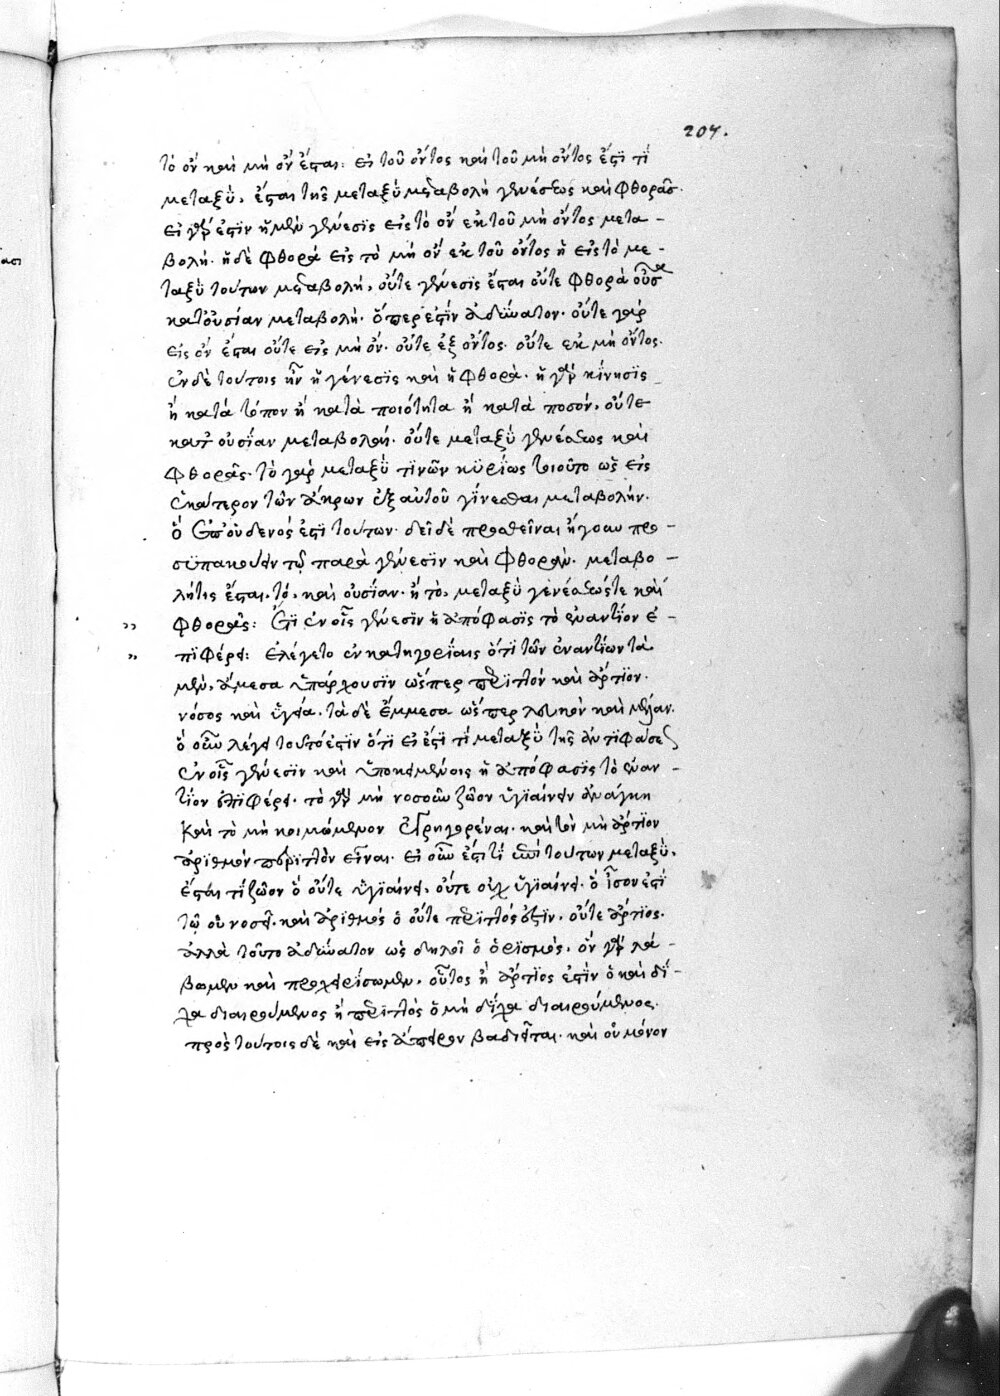 207.
τὸ ὂν καὶ μὴ ὂν ἔσται: εἰ τοῦ ὄντος καὶ τοῦ μὴ ὄντος ἔστι τί
μεταξὺ, ἔσται τῆς μεταξὺ μεταβολὴ γενέσεως καὶ φθορᾶς.
εἰ γάρ ἐστιν ἡ μὲν γένεσις εἰς τὸ ὂν ἐκ τοῦ μὴ ὄντος μετα-
βολή. ἡ δὲ φθορά εἰς τὸ μὴ ὂν ἐκ τοῦ ὄντος ἡ εἰς τὸ με-
ταξὺ τούτων μεταβολή, οὔτε γένεσις ἔσται οὔτε φθορὰ οὖσα
κατ' οὐσίαν μεταβολή. ὅπερ ἐστὶν ἀδύνατον. οὔτε γὰρ
εἰς ὂν ἔσται οὔτε εἰς μὴ ὂν. οὔτε ἐξ ὄντος. οὔτε ἐκ μὴ ὄντος.
ἐν δὲ τούτοις ἦν ἡ γένεσις καὶ ἡ φθορὰ. ἡ γὰρ κίνησις
ἢ κατὰ τόπον ἢ κατὰ ποιότητα ἢ κατὰ ποσόν, οὔτε
κατ' οὐσίαν μεταβολὴ. οὔτε μεταξὺ γενέσεως καὶ
φθορᾶς. τὸ γὰρ μεταξὺ τινῶν κυρίως τοιοῦτο ὡς εἰς
ἑκάτερον τῶν ἄκρων ἐξ αὐτοῦ γίνεσθαι μεταβολήν.
ὃ ἐπ' οὐδενός ἐστι τούτων. δεῖ δὲ προσθεῖναι ἤγουν προ-
συπακούειν τῷ παρὰ γένεσιν καὶ φθορὰν. μεταβο
λή τις ἔσται, τὸ, κατ' οὐσίαν. ἢ τὸ, μεταξὺ γενέσεώς τε καὶ
φθορᾶς: Ἔτι ἐν οἷς γένεσιν ἡ ἀπόφασις τὸ ἐναντίον ἐ-
πιφέρει: ἐλέγετο ἐν κατηγορίαις ὅτι τῶν ἐναντίων τὰ
μὲν, ἄμεσα ὑπάρχουσιν ὥσπερ περιττὸν καὶ ἄρτιον.
νόσος καὶ ὑγεία. τὰ δὲ ἔμμεσα ὥσπερ λευκὸν καὶ μέλαν.
ὃ οὖν λέγει τοῦτό ἐστιν ὅτι εἰ ἔστι τί μεταξὺ τῆς ἀντιφάσεως
ἐν οἷς γένεσιν καὶ ὑποκειμένοις ἡ ἀπόφασις τὸ ἐναν-
τίον ἐπιφέρει. τὸ γὰρ μὴ νοσοῦν ζῶον ὑγιαίνειν ἀνάγκη
καὶ τὸ μὴ κοιμώμενον ἐγρηγορέναι. καὶ τὸν μὴ ἄρτιον
ἀριθμὸν περιττὸν εἶναι. εἰ οὖν ἔστι τί ἐπὶ τούτων μεταξὺ,
ἔσται τί ζῶον ὃ οὔτε ὑγιαίνει, οὔτε οὐχ ὑγιαίνει. ὃ ἴσον ἐστί
τῷ οὐ νοσεῖ. καὶ ἀριθμός ὃ οὔτε περιττός ἐστιν, οὔτε ἄρτιος.
ἀλλὰ τοῦτο ἀδύνατον ὡς δηλοῖ ὁ ὁρισμός. ὃν γὰρ λά-
βωμεν καὶ προχειρίσωμεν, οὗτος ἢ ἄρτιος ἐστὶν ὁ καὶ δί-
χα διαιρούμενος ἢ περιττὸς ὁ μὴ δίχα διαιρούμενος.
πρὸς τούτοις δὲ καὶ εἰς ἄπειρον βαδιεῖται. καὶ οὐ μόνον